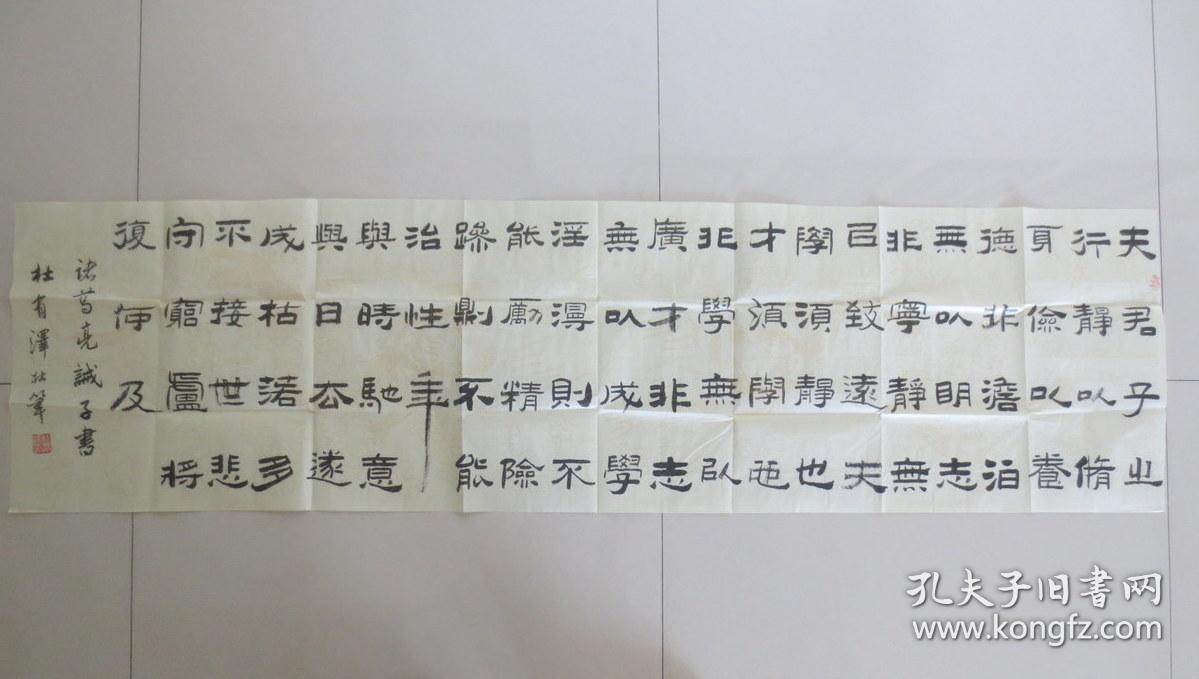 夫君子之
行靜以脩
身儉以養
德非澹泊
無以明志
非寧靜無
以致遠夫
學須靜也
才須學也
非學無以
廣才非志
無以成學
淫漫則不
能勵精險
躁則不能
治性年
與時馳意
與日去遂
成枯落多
不接世悲
守窮廬將
復何及
諸葛亮誡子書
杜有澤拙筆
孔夫子旧书网
www.kongfz.com